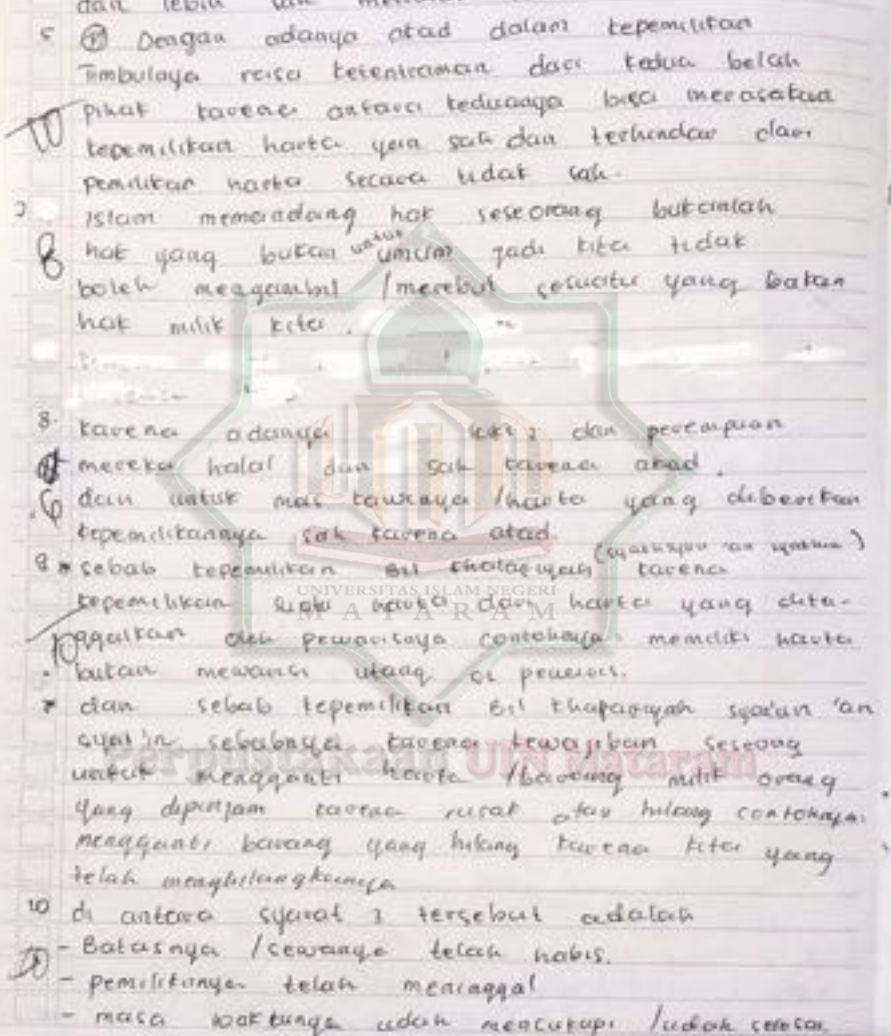 dan lebih
5 Dengan adanya akad dalam kepemilikan
Timbulnya rasa ketentraman dari kedua belah
10 Pihak karena antara keduanya bisa merasakan
kepemilikan harta yang sah dan terhindar dari
pemilikan harta secara tidak sah.
7 Islam memandang hak seseorang bukanlah
8 hak yang bukan untuk umum jadi kita tidak
boleh mengambil / merebut sesuatu yang bukan
hak milik kita.
8. karena adanya laki2 dan perempuan
mereka halal dan sah karena akad.
6 dan untuk mas kawinnya / harta yang diberikan
kepemilikannya sah karena akad.
9 * sebab kepemilikan Bil khalafiyah (syakhsyun 'an syakhsin) karena
kepemilikan suatu harta dari harta yang dita-
10 ggalkan oleh pewarisnya contohnya memiliki harta
bukan mewarisi utang si pewaris.
* dan sebab kepemilikan Bil khalafiyah syai'un 'an
syai'in sebabnya karena kewajiban seseoang
untuk mengganti harta / barang milik orang
yang dipinjam karena rusak atau hilang contohnya
mengganti barang yang hilang karena kita yang
telah menghilangkannya
10 di antara syarat2 tersebut adalah
- Batasnya / sewanya telah habis.
10 - pemiliknya telah meninggal
- masa waktunya udah mencukupi / udah selesai
UNIVERSITAS ISLAM NEGERI
MATARAM
Perpustakaan UIN Mataram